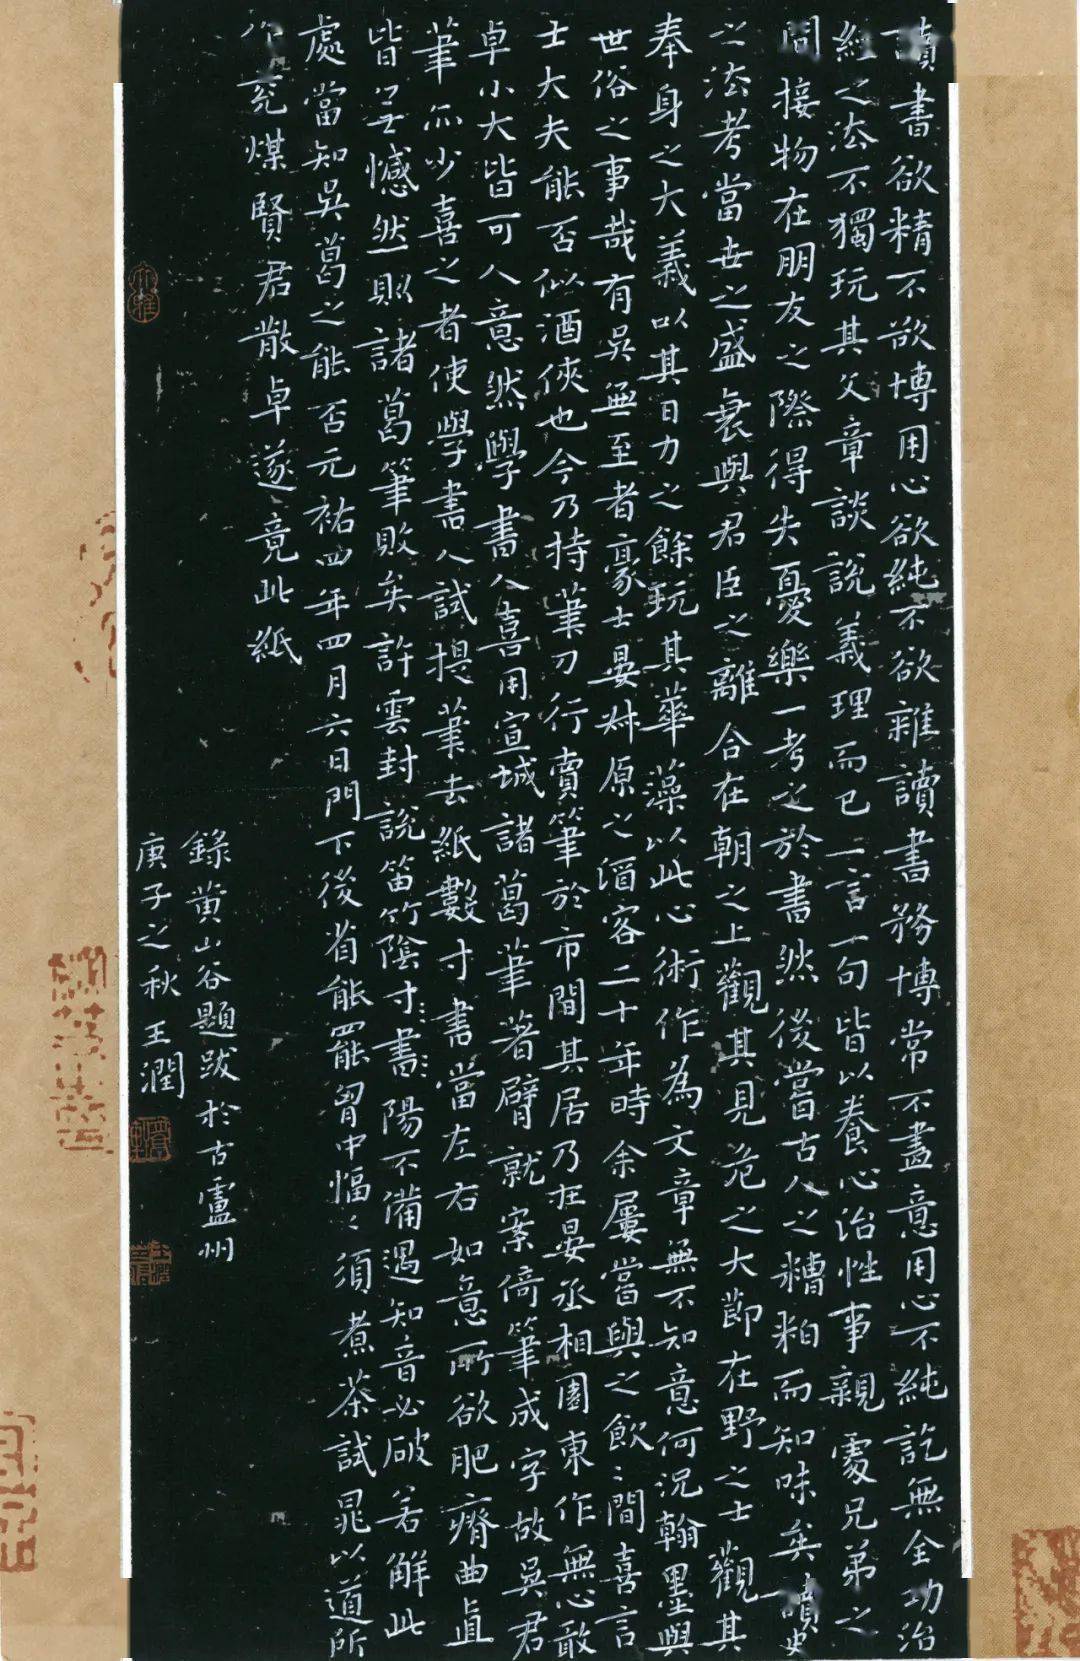 讀書欲精不欲博用心欲純不欲雜讀書務博常不盡意用心不純訖無全功治
經之法不獨玩其文章談說義理而已一言一句皆以養心治性事親處兄弟之
間接物在朋友之際得失憂樂一考之於書然後嘗古人之糟粕而知味矣讀史
之法考當世之盛衰與君臣之離合在朝之上觀其見危之大節在野之士觀其
奉身之大義以其日力之餘玩其華藻以此心術作為文章無不知意何況翰墨與
世俗之事哉有吳無至者豪士晏叔原之酒客二十年時余屢嘗與之飲飲間喜言
士大夫能否似酒俠也今乃持筆刀行賣筆於市間其居乃在晏丞相園東作無心散
卓小大皆可人意然學書人喜用宣城諸葛筆著臂就案倚筆成字故吳君
筆亦少喜之者使學書人試提筆去紙數寸書當左右如意所欲肥瘠曲直
皆無憾然則諸葛筆敗矣許雲封說笛竹陰寸書陽不備遇知音必破若解此
處當知吳葛之能否元祐四年四月六日門下後省能罷胃中愊愊須煮茶試晁以道所
作兗煤賢君散卓遂竟此紙
錄黃山谷題跋於古廬州
庚子之秋王潤